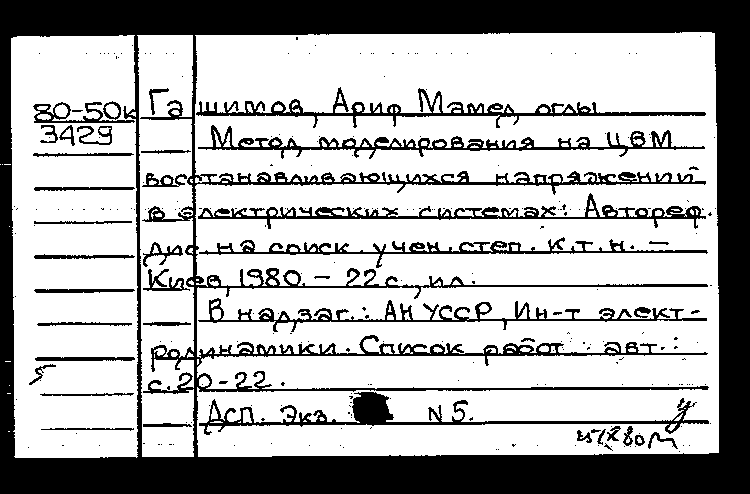 80-50к Гашимов, Ариф Мамед оглы
3429 Метод моделирования на ЦВМ
восстанавливающихся напряжений
в электрических системах: Автореф.
дис. на соиск. учен. степ. к.т.н. –
Киев, 1980. – 22 с., ил.
В надзаг.: АН УССР, Ин-т элект-
родинамики. Список работ авт.:
с. 20-22.
Дсп. Экз. N 5.